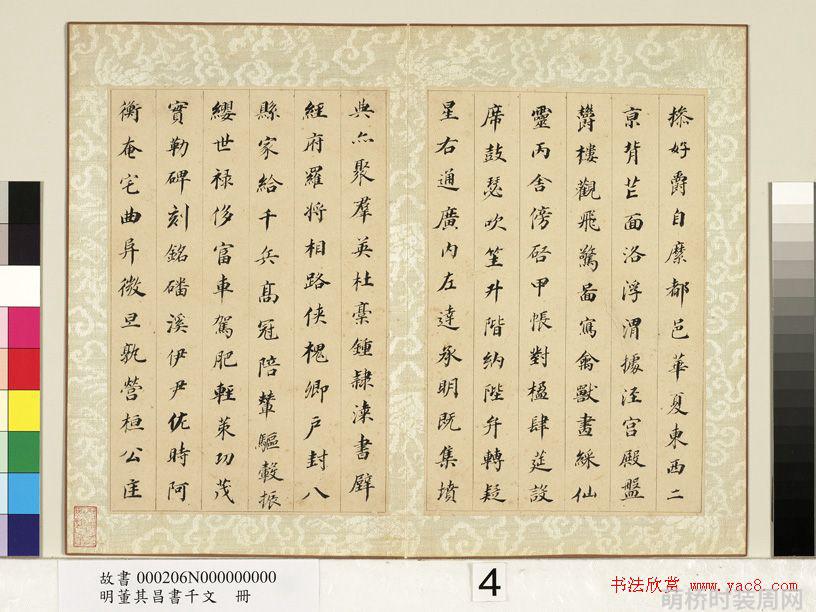 摻好爵自縻都邑華夏東西二
亰背芒面洛浮渭據涇宫殿盤
欝樓觀飛驚啚寫禽獸畫綵仙
靈丙舍傍啓甲帳對楹肆莚設
席鼓瑟吹笙升階納陛弁轉疑
星右通廣内左達承明既集墳
典亦聚羣英杜稾鍾隸漆書壁
經府羅将相路俠槐卿户封八
縣家給千兵髙冠陪輦驅轂振
纓世禄侈富車駕肥輕策功茂
實勒碑刻銘磻溪伊尹佐時阿
衡奄宅曲阜微旦孰營桓公匡
故書 000206N000000000
明董其昌書千文 冊
4
书法欣赏 www.yac8.com
萌桥时装周网